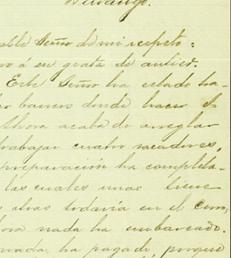 Durango.
able Señor de mi respeto:
vo á su grata de antier.
Este Señor ha estado ha-
barreno donde hacer
Ahora acaba de arreglar
trabajar cuatro sacadores,
preparación ha completa-
las cuales unas tiene
otras todavía en el Com
ora nada ha embarcado.
nada, ha pagado porque